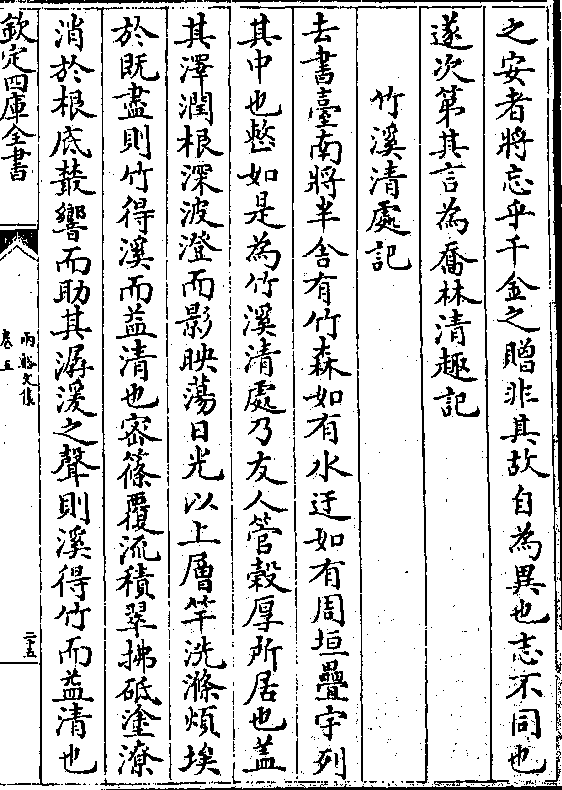 之安者將忘乎千金之贈非其故自為異也志不同也
遂次第其言為喬林清趣記
竹溪清處記
去書臺南將半舍有竹森如有水迂如有周垣疊宇列
其中也整如是為竹溪清處乃友人管穀厚所居也盖
其澤潤根深波澄而影映蕩日光以上層竿洗滌煩埃
於既盡則竹得溪而益清也宻篠覆流積翠拂砥塗潦
消於根底叢響而助其潺湲之聲則溪得竹而益清也
欽定四庫全書
兩谿文集
卷五
二十五